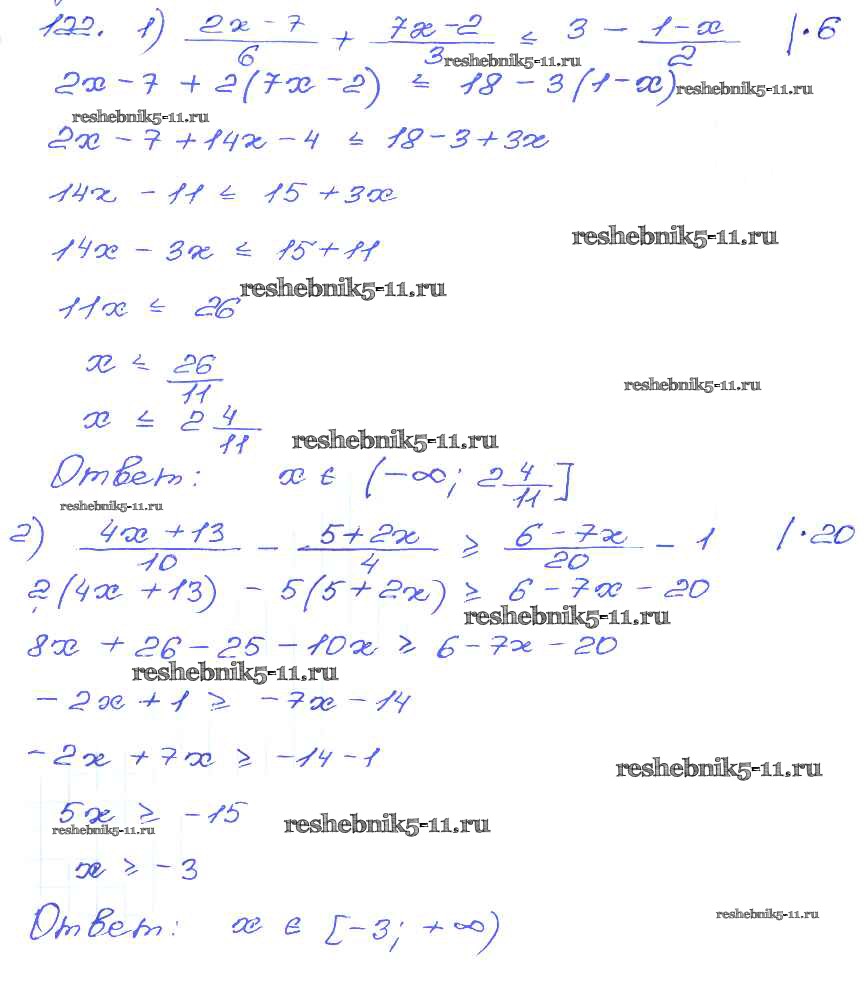 122. 1) (2x - 7)/6 + (7x - 2)/3 ≤ 3 - (1 - x)/2 | · 6
reshebnik5-11.ru
2x - 7 + 2(7x - 2) ≤ 18 - 3(1 - x)
reshebnik5-11.ru
reshebnik5-11.ru
2x - 7 + 14x - 4 ≤ 18 - 3 + 3x
14x - 11 ≤ 15 + 3x
reshebnik5-11.ru
14x - 3x ≤ 15 + 11
reshebnik5-11.ru
11x ≤ 26
x ≤ 26/11
reshebnik5-11.ru
x ≤ 2 4/11
reshebnik5-11.ru
Ответ: x ∈ (-∞; 2 4/11]
reshebnik5-11.ru
2) (4x + 13)/10 - (5 + 2x)/4 ≥ (6 - 7x)/20 - 1 | · 20
2(4x + 13) - 5(5 + 2x) ≥ 6 - 7x - 20
reshebnik5-11.ru
8x + 26 - 25 - 10x ≥ 6 - 7x - 20
reshebnik5-11.ru
-2x + 1 ≥ -7x - 14
-2x + 7x ≥ -14 - 1
reshebnik5-11.ru
5x ≥ -15
reshebnik5-11.ru
reshebnik5-11.ru
x ≥ -3
reshebnik5-11.ru
Ответ: x ∈ [-3; +∞)